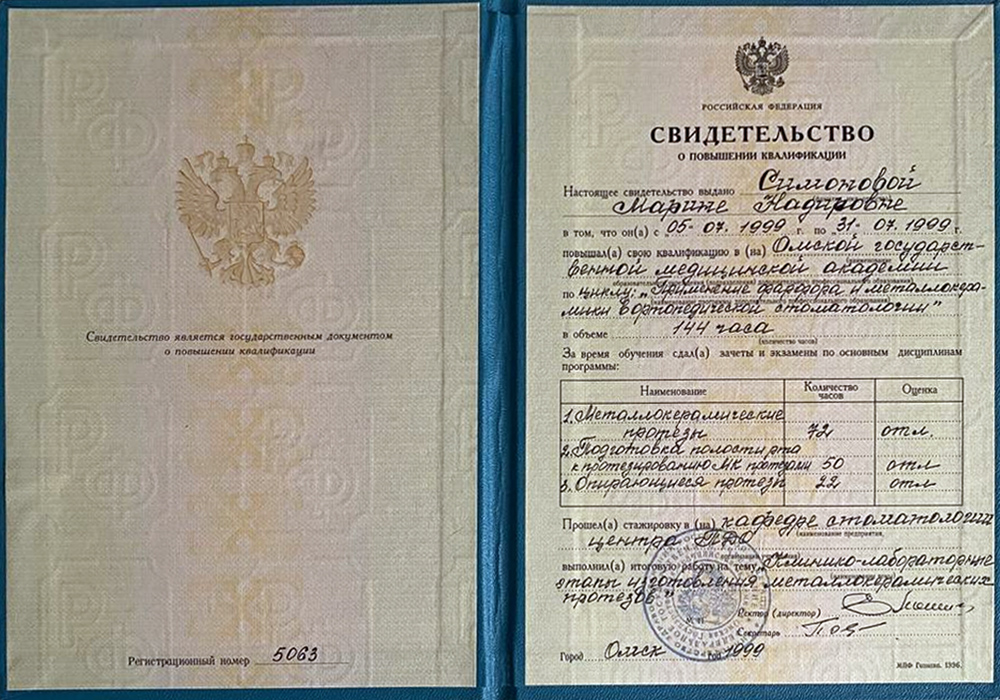 Свидетельство является государственным документом
о повышении квалификации
Регистрационный номер 5063
РОССИЙСКАЯ ФЕДЕРАЦИЯ
СВИДЕТЕЛЬСТВО
О ПОВЫШЕНИИ КВАЛИФИКАЦИИ
Настоящее свидетельство выдано Симоновой
Марине Надировне
в том, что он(а) с 05-07. 1999 г. по 31-07. 1999 г.
повышал(а) свою квалификацию в (на) Омской государст-
венной медицинской академии
по циклу: „Применение фарфора и металлокера-
мики в ортопедической стоматологии"
в объеме 144 часа
(количество часов)
За время обучения сдал(а) зачеты и экзамены по основным дисциплинам
программы:
Наименование Количество часов Оценка
1. Металлокерамические
протезы 72 отл.
2. Подготовка полости рта
к протезированию МК протезами 50 отл
3. Опирающиеся протезы 22 отл
Прошел(а) стажировку в (на) кафедре стоматологии
(наименование предприятия,
центра ПДО
выполнил(а) итоговую работу на тему „Клинико-лабораторные
этапы изготовления металлокерамических
протезов"
Ректор (директор)
Секретарь
Город Омск год 1999